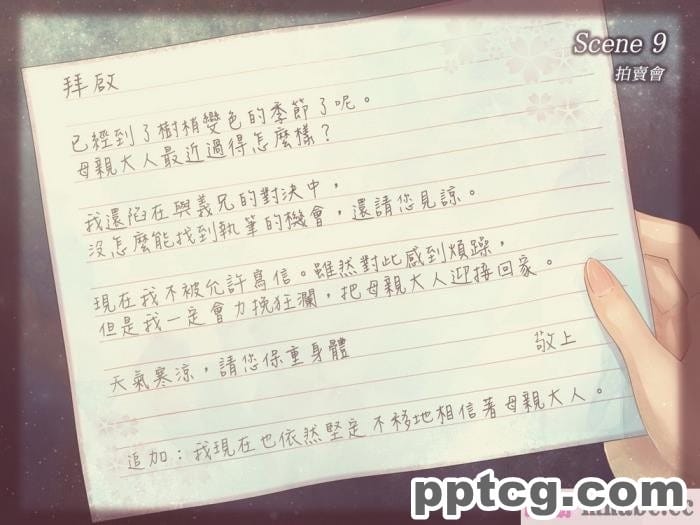 Scene 9
拍賣會
拜啟
已經到了樹梢變色的季節了呢。
母親大人最近過得怎麼樣？
我還陷在與義兄的對決中，
沒怎麼能找到執筆的機會，還請您見諒。
現在我不被允許寫信。雖然對此感到煩躁，
但是我一定會力挽狂瀾，把母親大人迎接回家。
天氣寒涼，請您保重身體
敬上
追加：我現在也依然堅定不移地相信著母親大人。
pptcg.com